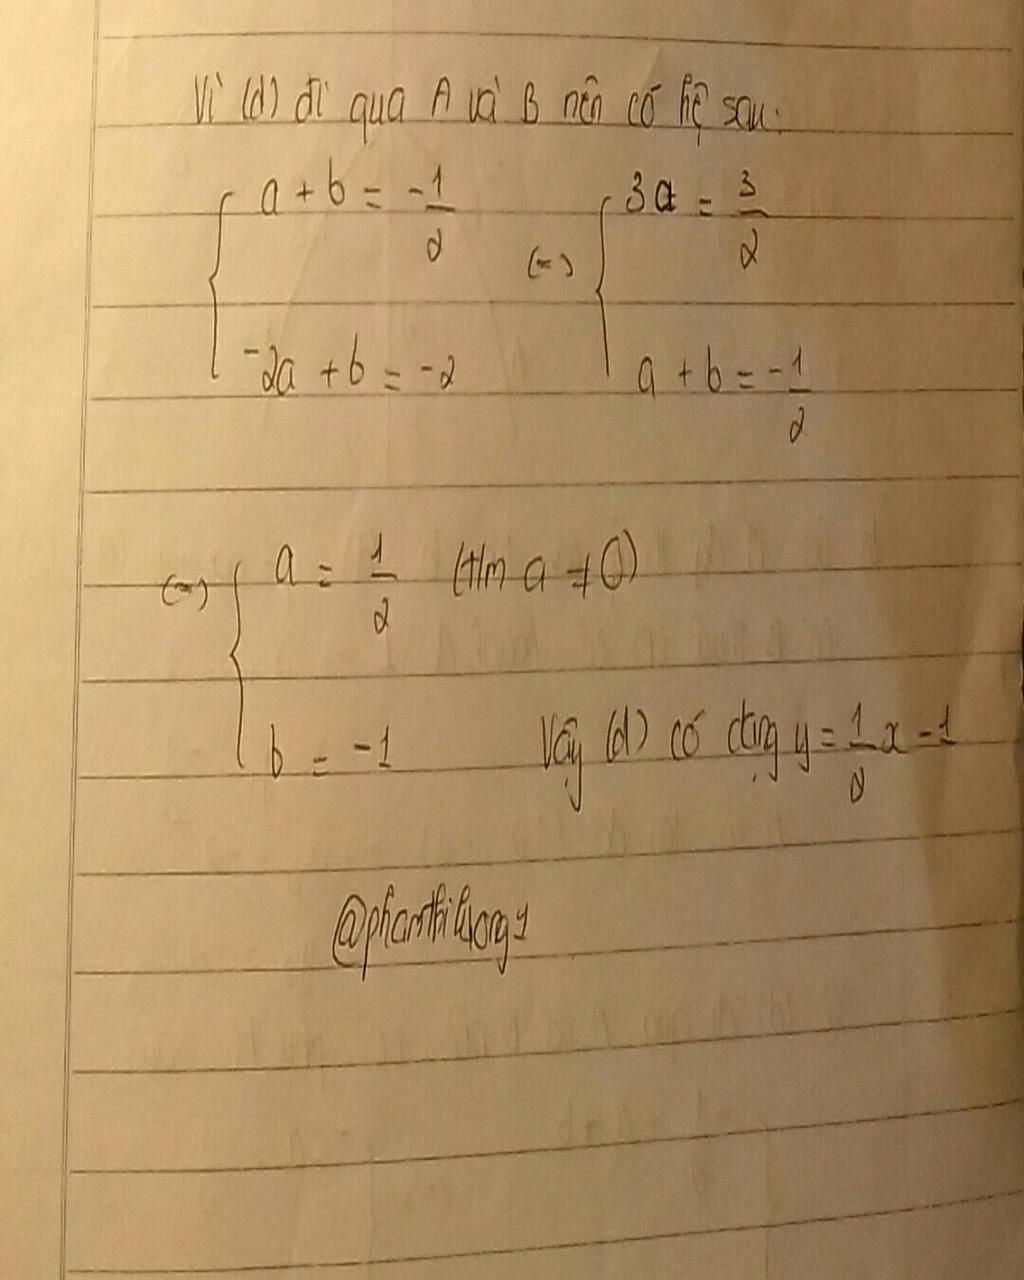 Vì (d) đi qua A và B nên có hệ sau:
{ a + b = -1/2 (=) { 3a = 3/2
-2a + b = -2 a + b = -1/2
(=) { a = 1/2 (t/m a ≠ 0)
b = -1 Vậy (d) có dạng y = 1/2 x - 1
@phamthihuong1